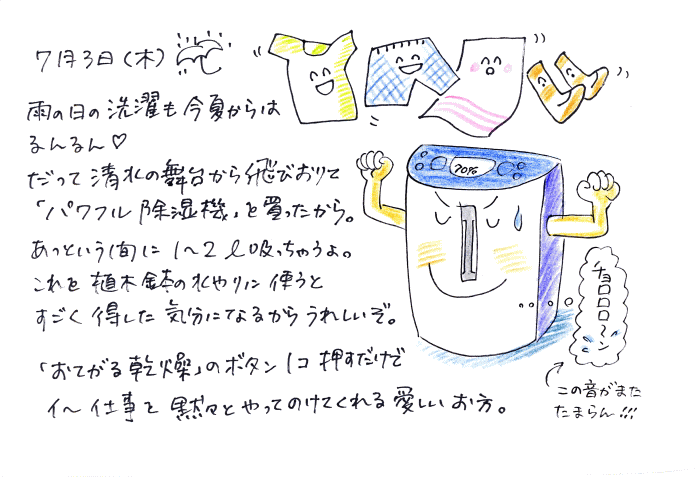 7月3日(木)
雨の日の洗濯も今夏からは
るんるん♡
だって清水の舞台から飛びおりて
「パワフル除湿機」を買ったから。
あっという間に1〜2ℓ吸っちゃうよ。
これを植木鉢の水やりに使うと
すごく得した気分になるからうれしいぞ。
「おてがる乾燥」のボタン1コ押すだけで
イ〜仕事を黙々とやってのけてくれる愛しいお方。
70%
チョロロロ〜ン
この音がまた
たまらん!!!